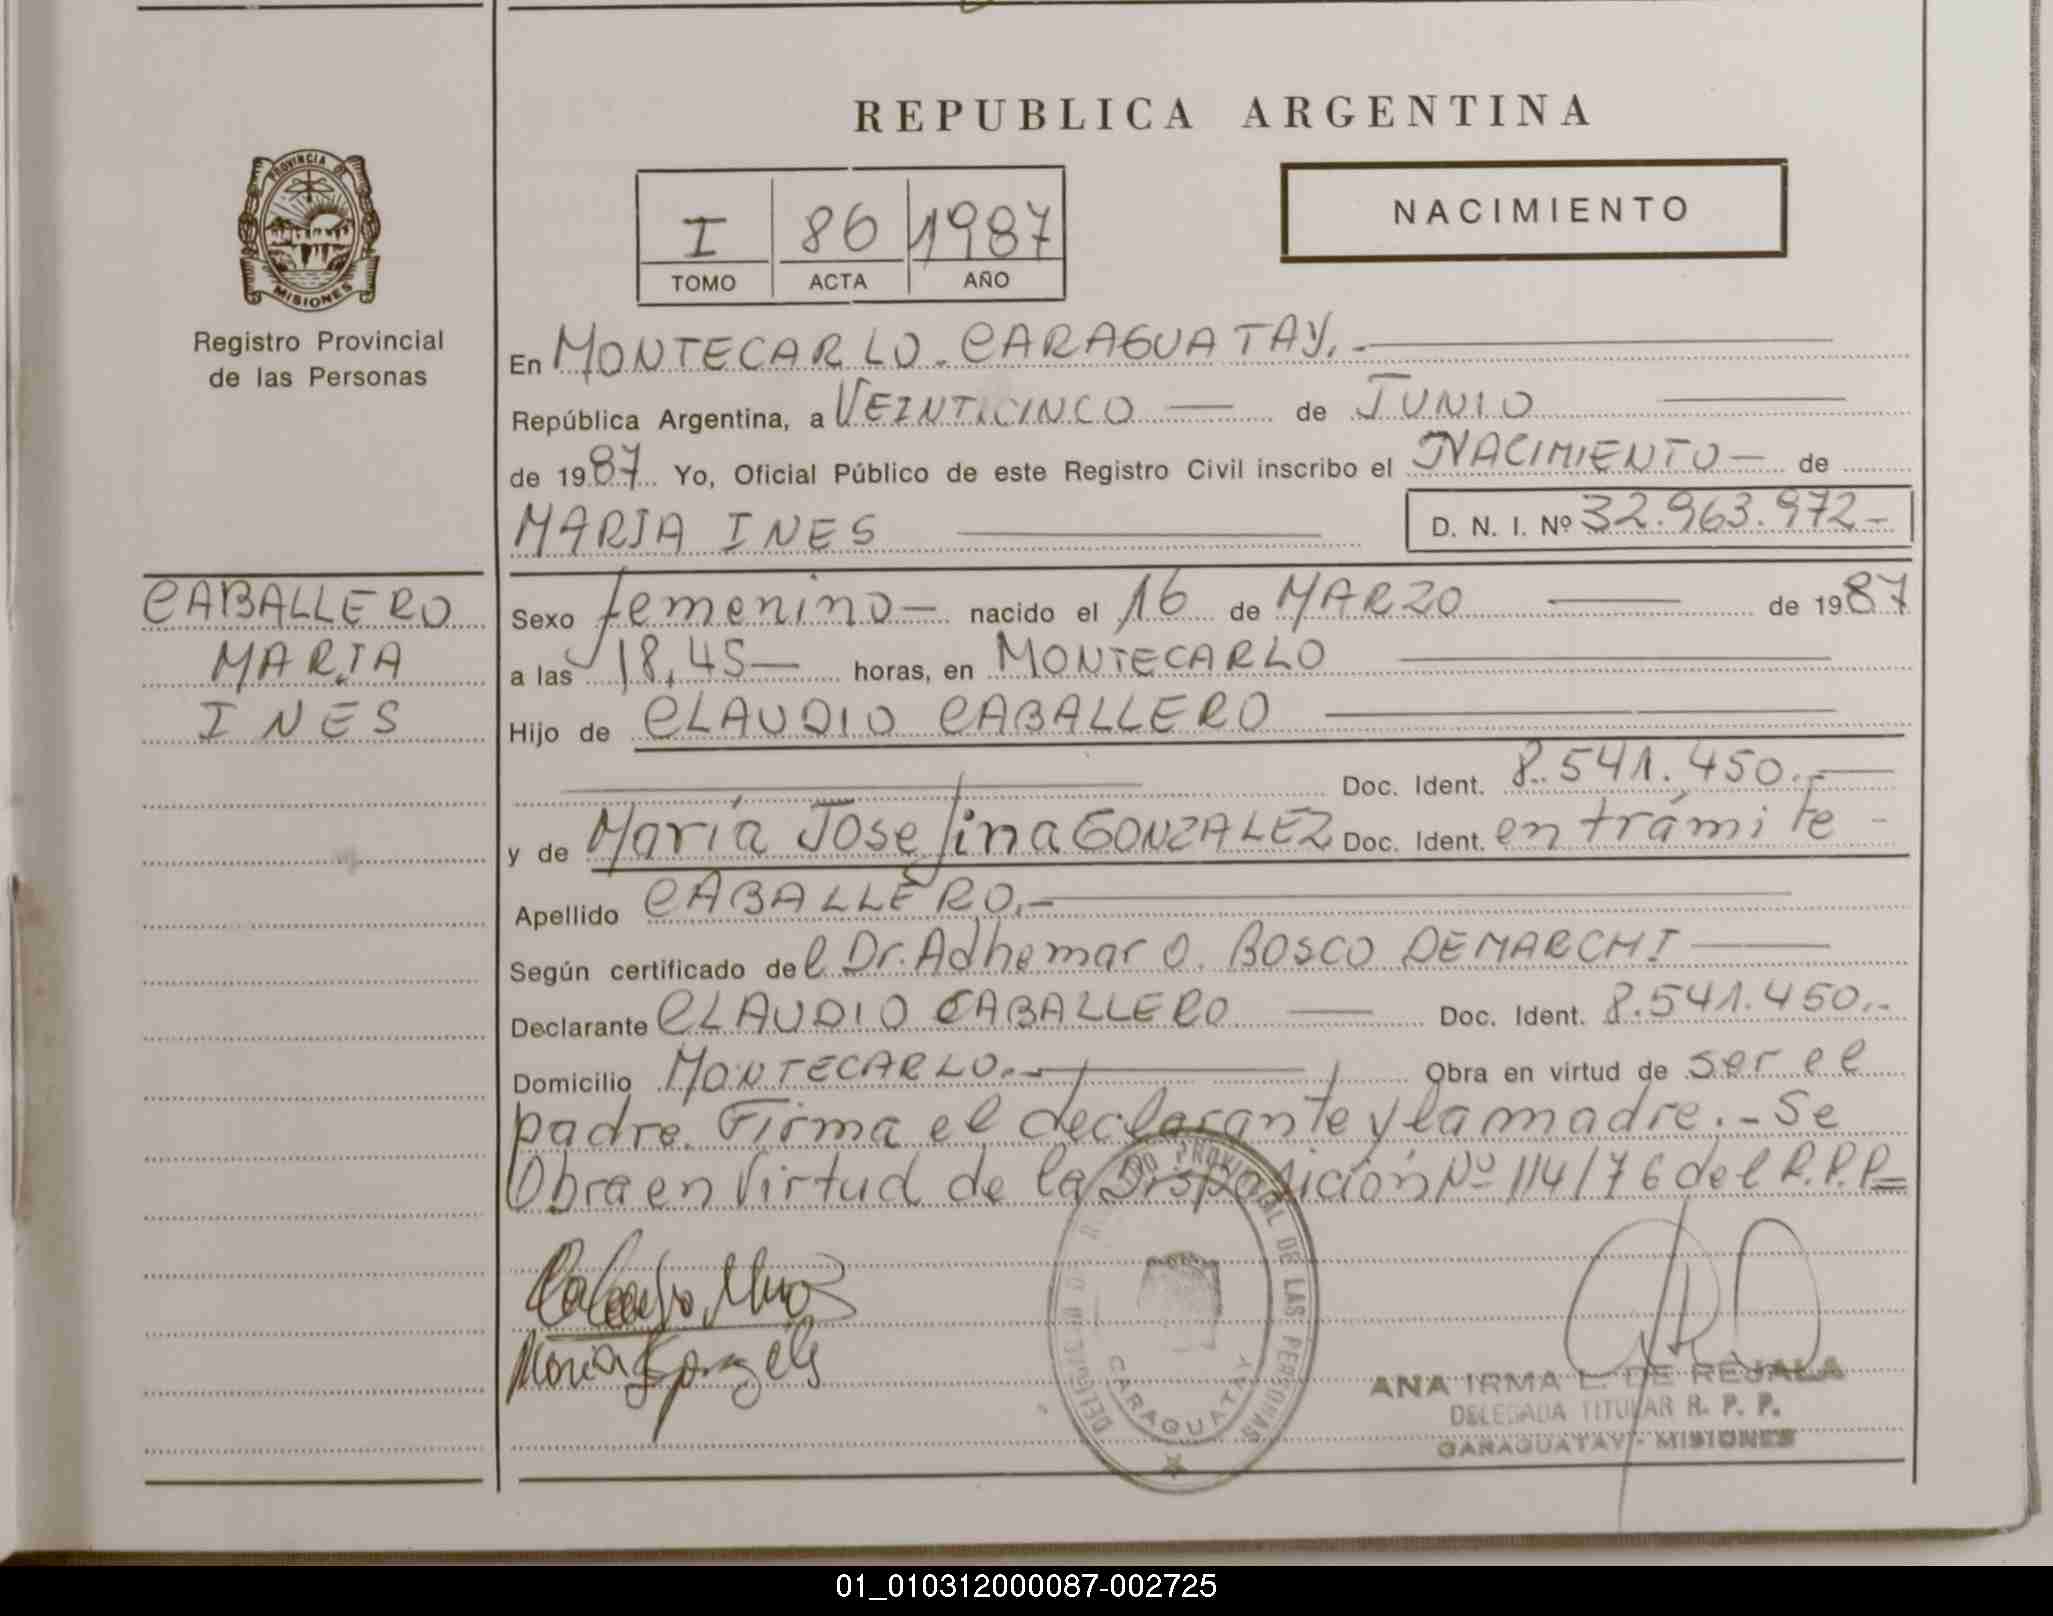 REPUBLICA ARGENTINA
PROVINCIA DE
MISIONES
Registro Provincial
de las Personas
I 86 1987
TOMO ACTA AÑO
NACIMIENTO
En MONTECARLO - CARAGUATAY.-
República Argentina, a VEINTICINCO — de JUNIO
de 1987 Yo, Oficial Público de este Registro Civil inscribo el NACIMIENTO — de
MARIA INES
D. N. I. Nº 32.963.972-
CABALLERO
MARIA
INES
Sexo femenino — nacido el 16 de MARZO — de 1987
a las 18,45 — horas, en MONTECARLO
Hijo de CLAUDIO CABALLERO
Doc. Ident. 8.541.450.-
y de María Josefina GONZALEZ Doc. Ident. en trámite -
Apellido CABALLERO.-
Según certificado del Dr. Adhemar O. BOSCO DEMARCHI
Declarante CLAUDIO CABALLERO — Doc. Ident. 8.541.450.-
Domicilio MONTECARLO.- Obra en virtud de ser el
padre. Firma el declarante y la madre.- Se
Obra en Virtud de la Disposición Nº 114/76 del R.P.P.=
PROVINCIAL DE LAS PERSONAS
CARAGUATAY
ANA IRMA L. DE REJALA
DELEGADA TITULAR R. P. P.
CARAGUATAY - MISIONES
01_010312000087-002725